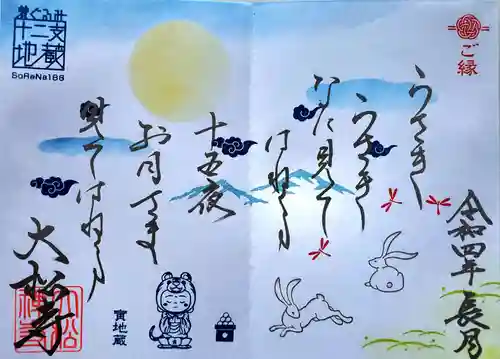 ご縁
令和四年 長月
うさぎ
うさぎ
なに見て
はねる
十五夜
お月さま
見てはねる
寅地蔵
大松寺
大松禅寺
着ぐるみ
十二支
地蔵